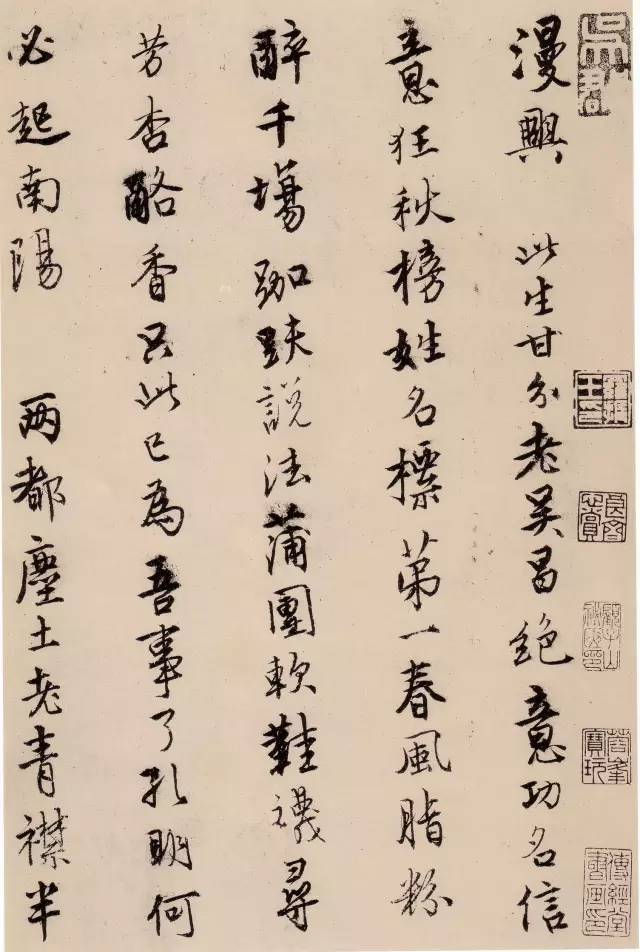 漫興 此生甘分老吳昌絕意功名信
意狂秋榜姓名標第一春風脂粉
醉千場跏趺說法蒲團軟鞋襪尋
芳杏酪香只此已為吾事了孔明何
必起南陽 兩都塵土老青襟半
蓉峯寶玩
傳經堂書畫印